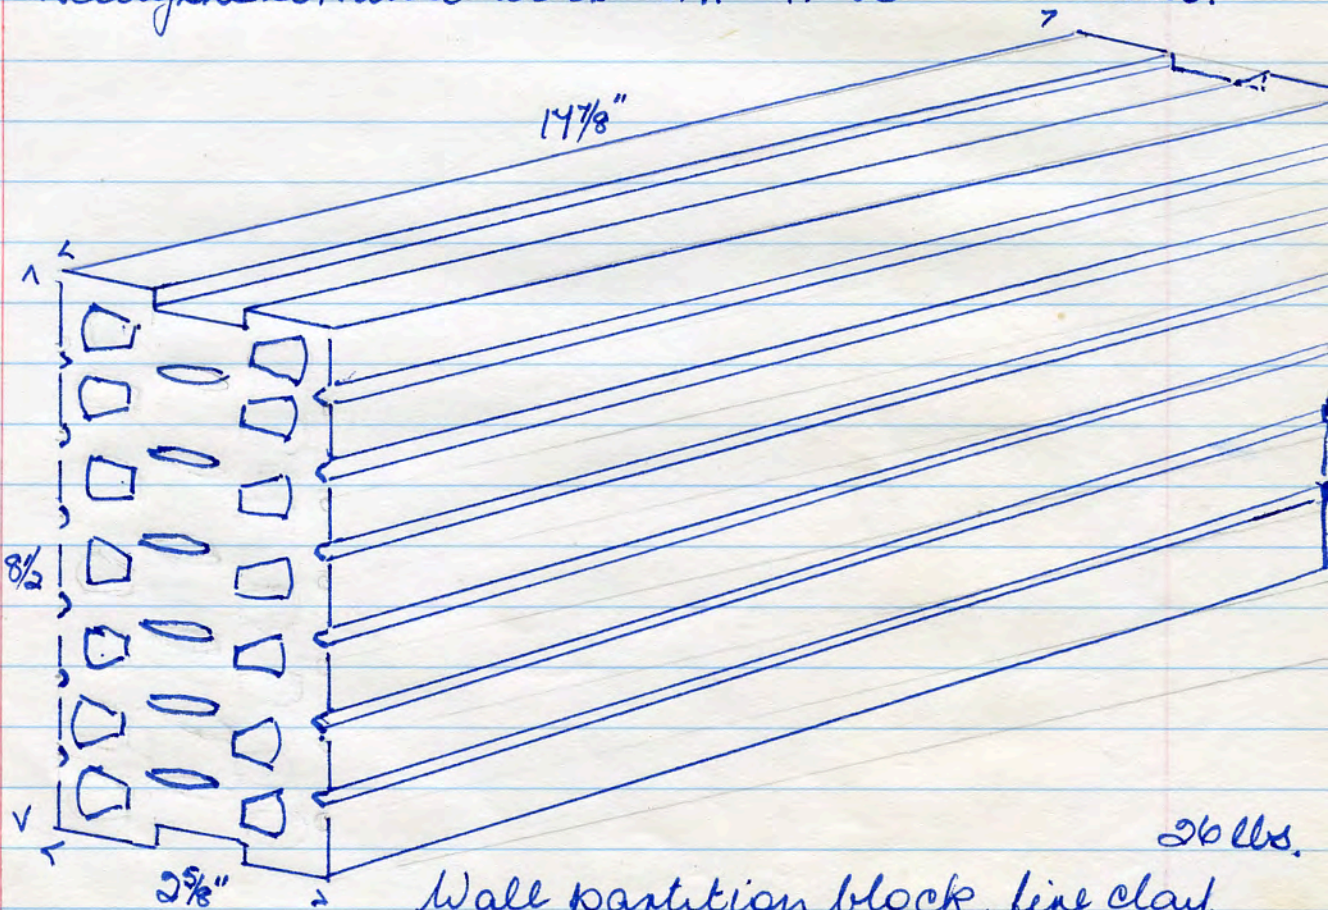 14 7/8"
8 1/2
26 lbs.
2 5/8"
Wall partition block, fire clay